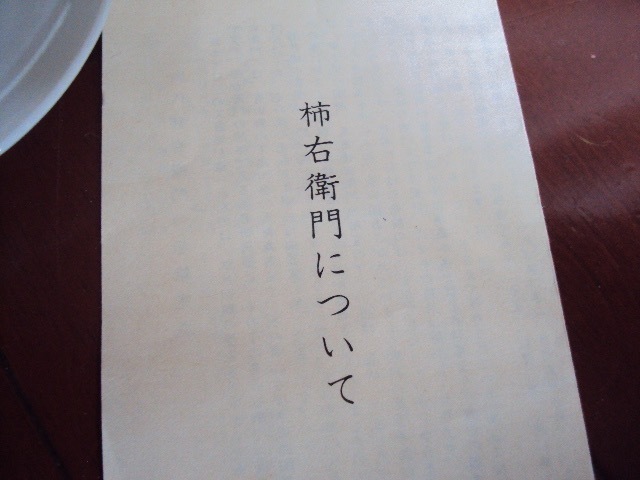 柿右衛門について